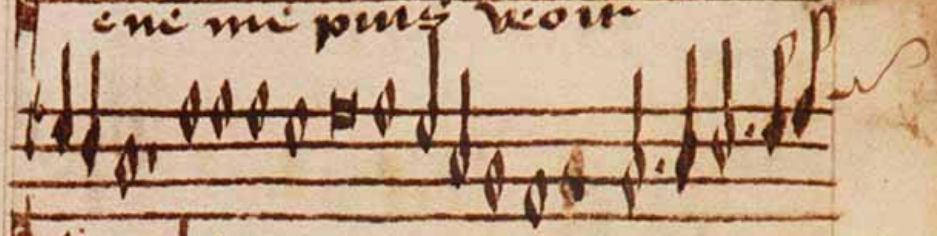 ene me puis veoir